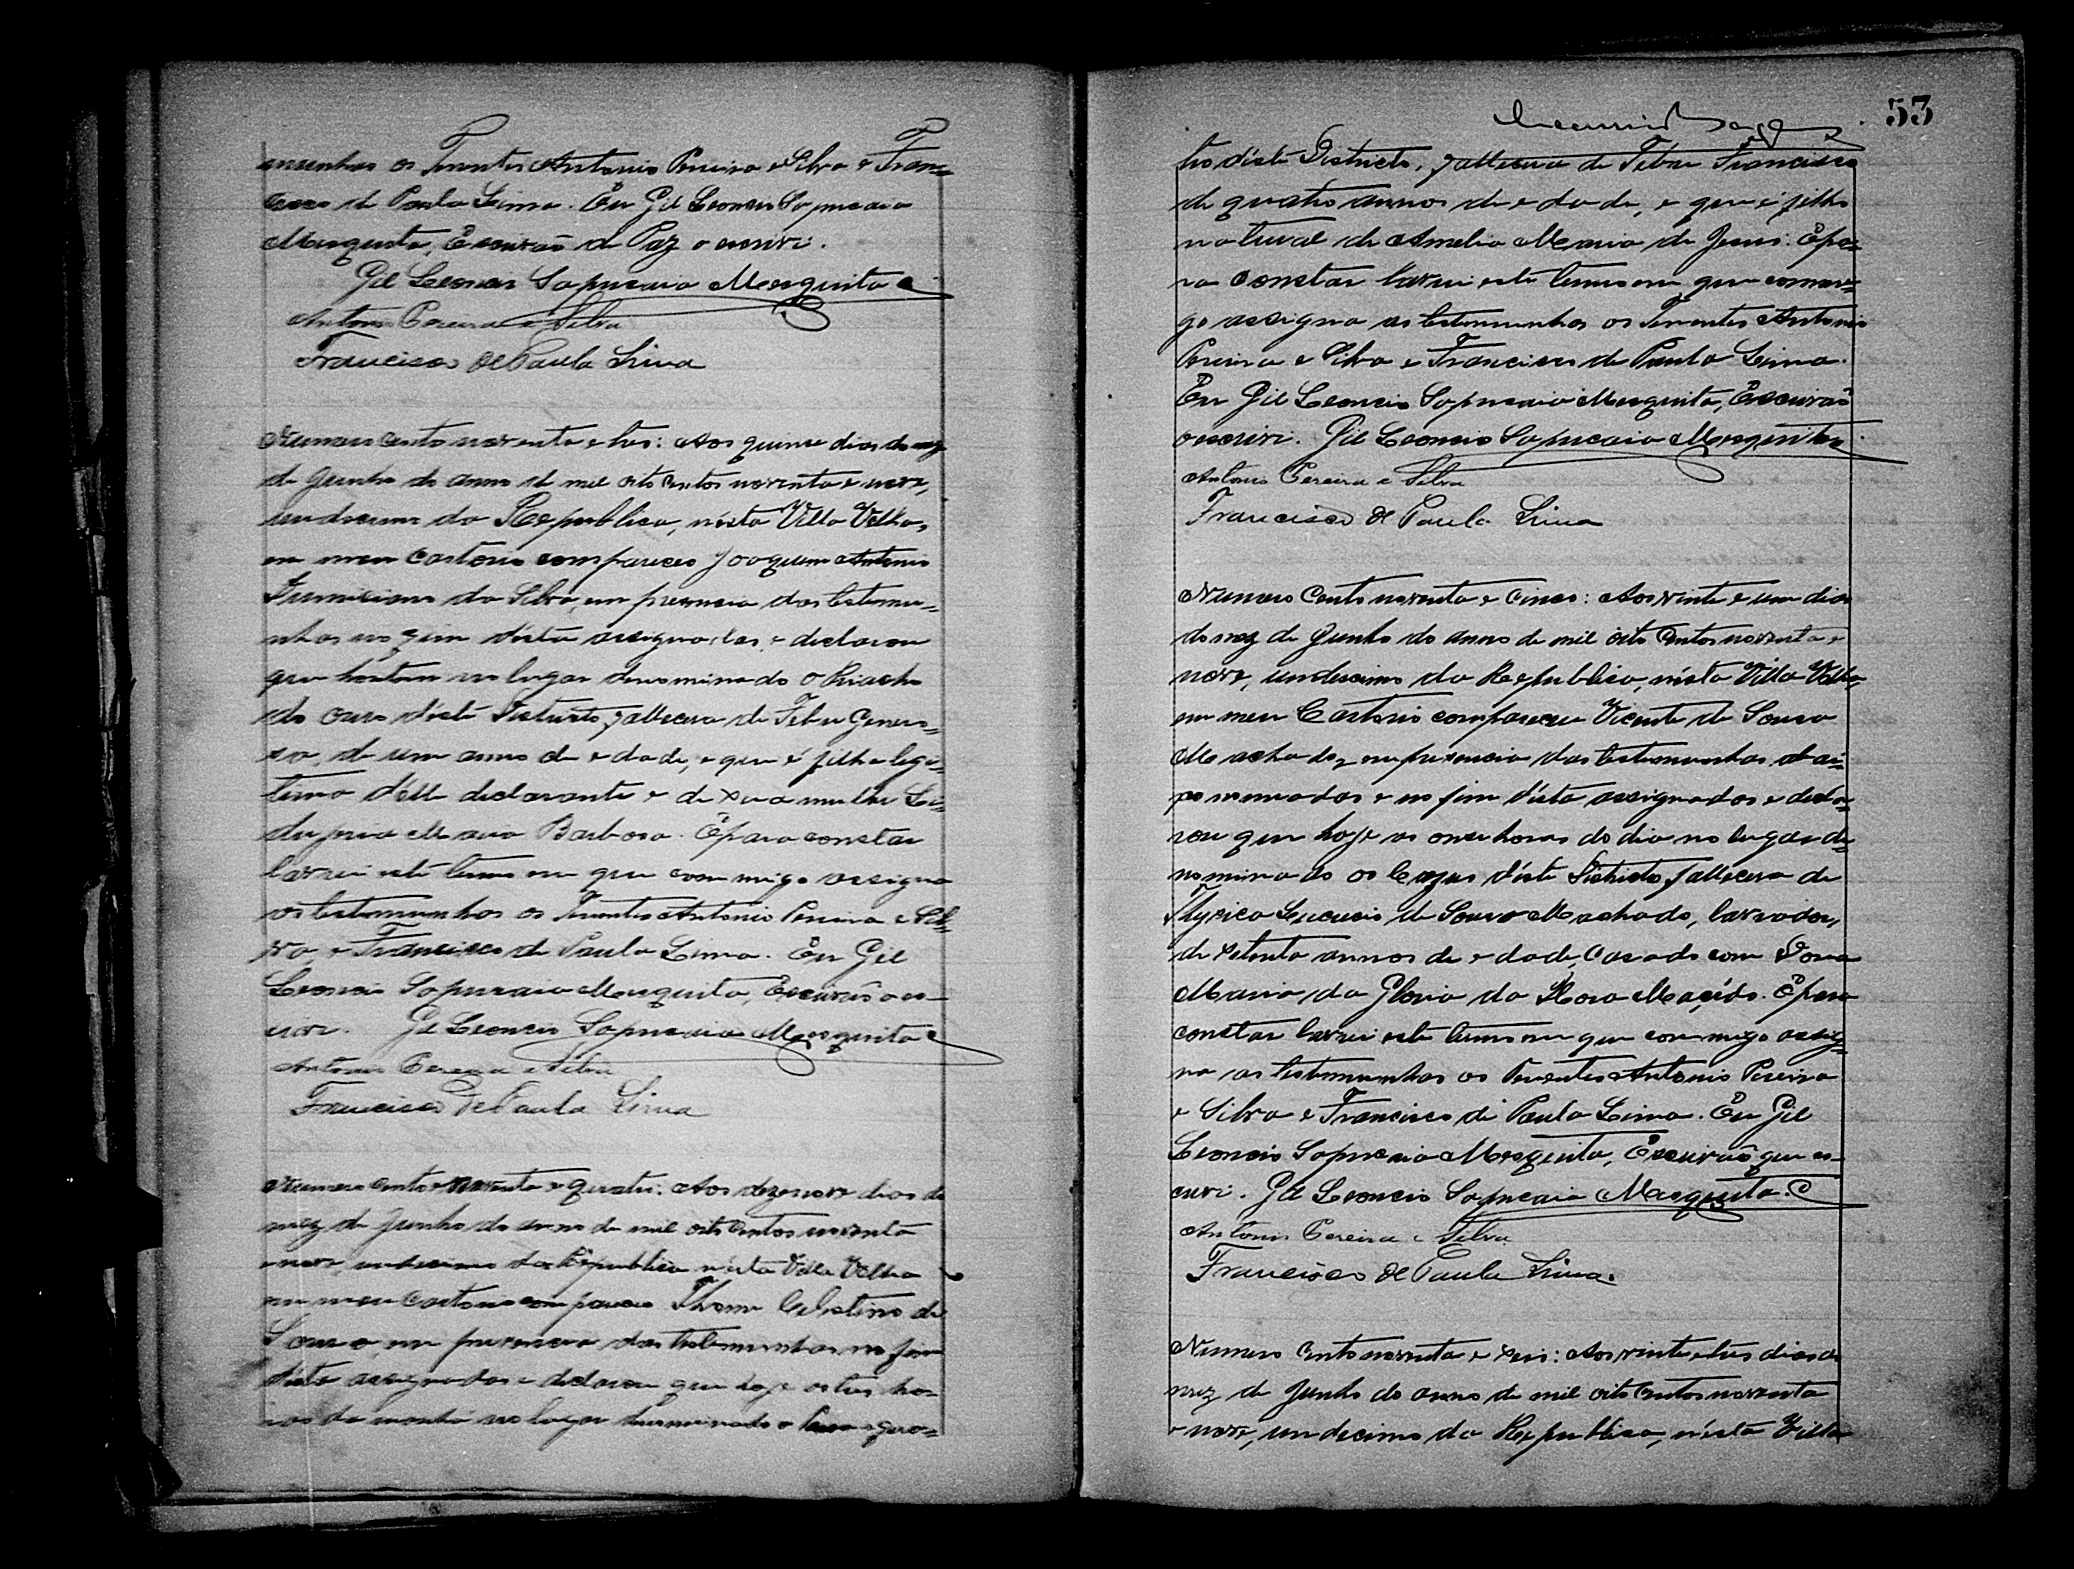 os Tenentes Antonio Pereira e Silva e Fran=
cisco de Paula Lima. Eu Gil Leoncio Sapucaia
Mesquita, Escrivaõ de Paz o escrivi.
Gil Leoncio Sapucaia Mesquita
Antonio Pereira e Silva
Francisco de Paula Lima
Numero cento noventa e tres: Aos quinze dias do mez
de Junho do anno de mil oito centos noventa e nove,
undecimo da Republica, nésta Villa Velha,
em meu Cartorio compareceo Joaquim Antonio
da Silva, em presencia das testemu=
nhas no fim désta assignadas, e declarou
que hontem no lugar denominado o Riacho
do ouro déste Districto, fallecera de Febre Genero=
sa, de um anno de edade, e que é filha legi=
tima délle declarante e de sua mulher
Maria Barbosa. E para constar
lavrei este termo em que commigo assigna
as testemunhas os Tenentes Antonio Pereira e Sil=
va, e Francisco de Paula Lima. Eu Gil
Leoncio Sapucaia Mesquita, Escrivaõ o es=
crivi. Gil Leoncio Sapucaia Mesquita
Antonio Pereira e Silva
Francisco de Paula Lima
Numero cento e noventa e quatro: Aos dezenove dias do
mez de Junho do anno de mil oito centos noventa
e nove, undecimo da Republica nésta Villa Velha
em meu Cartorio compareceo Thome Celestino de
Sousa, em presencia das testemunhas no fim
désta assignadas e declarou que hoje as tres ho=
ras da manhã no lugar denominado o
53
tro déste Districto, fallecera de Febre Francisco
de quatro annos de edade, e que é filho
natural de Amelia Maria de Jesus. E pa=
ra constar lavrei este termo em que commi=
go assigna as testemunhas os Tenentes Antonio
Pereira e Silva e Francisco de Paula Lima.
Eu Gil Leoncio Sapucaia Mesquita, Escrivaõ
o escrivi. Gil Leoncio Sapucaia Mesquita
Antonio Pereira e Silva
Francisco de Paula Lima
Numero cento noventa e cinco: Aos vinte e um dias
do mez de Junho do anno de mil oito centos noventa e
nove, undecimo da Republica, nésta Villa Velha,
em meu Cartorio compareceu Vicente de Sousa
Machado, em presencia das testemunhas abai=
xo nomeadas e no fim désta assignadas e decla=
rou que hoje as onze horas do dia no lugar de=
nominado os déste Districto, fallecera de
Thysica de Sousa Machado, lavrador,
de setenta annos de edade, casado com Dona
Maria da Gloria da Rosa E para
constar lavrei este termo em que commigo assig=
na as testemunhas os Tenentes Antonio Pereira
e Silva e Francisco de Paula Lima. Eu Gil
Leoncio Sapucaia Mesquita, Escrivaõ que es=
crivi. Gil Leoncio Sapucaia Mesquita
Antonio Pereira e Silva
Francisco de Paula Lima.
Numero cento noventa e seis: Aos vinte e tres dias do
mez de Junho do anno de mil oito centos noventa
e nove, undecimo da Republica, nésta Villa